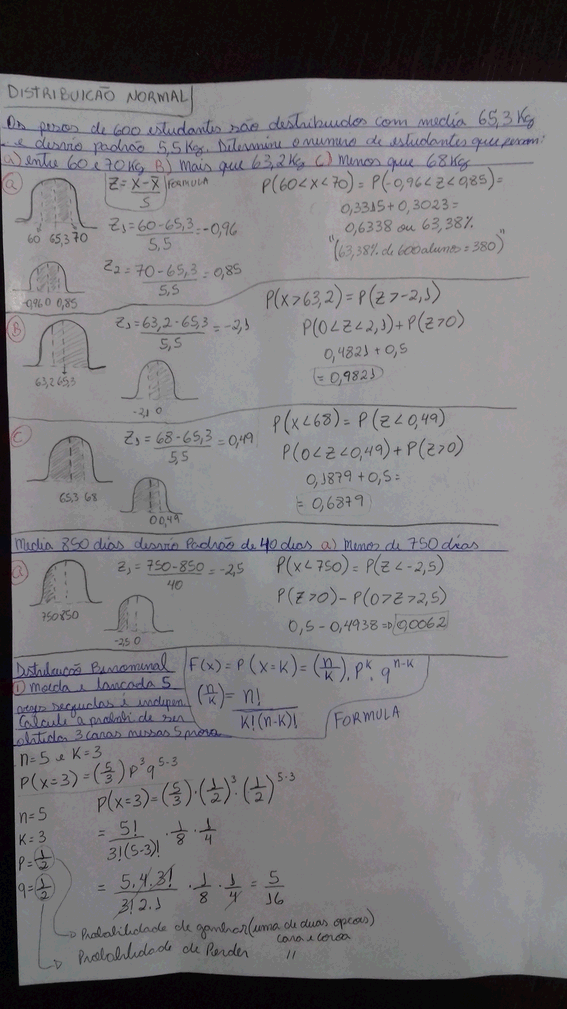 DISTRIBUICÃO NORMAL
Os pesos de 600 estudantes são distribuidos com media 65,3 Kg
e desvio padrão 5,5 Kg. Determine o numero de estudantes que pesam:
a) entre 60 e 70 Kg B) Mais que 63,2 Kg C) Menos que 68 Kg
a) Z = X - X̄ / S FORMULA P(60<x<70) = P(-0,96<Z<0,85) =
60 65,3 70 Z1 = 60-65,3 / 5,5 = -0,96 0,3315 + 0,3023 =
0,6338 ou 63,38%
-0,96 0 0,85 Z2 = 70-65,3 / 5,5 = 0,85 "(63,38% de 600 alunos = 380)"
B) Z1 = 63,2-65,3 / 5,5 = -2,1 P(X>63,2) = P(Z>-2,1)
P(0<Z<2,1) + P(Z>0)
63,2 65,3 0,4821 + 0,5
-2,1 0 = 0,9821
C) Z1 = 68-65,3 / 5,5 = 0,49 P(X<68) = P(Z<0,49)
P(0<Z<0,49) + P(Z>0)
65,3 68 0,1879 + 0,5 =
0 0,49 = 0,6879
Media 850 dias desvio Padrão de 40 dias a) Menos de 750 dias
a) Z1 = 750-850 / 40 = -2,5 P(X<750) = P(Z<-2,5)
750 850 P(Z>0) - P(0>Z>2,5)
-2,5 0 0,5 - 0,4938 => 0,0062
Distribuicão Binominal
1) Moeda e lancada 5
vezes seguidas e indepen
Calcule a probabi. de ser
obtidas 3 caras nessas 5 prova
F(x) = P(X=K) = (n/K) . P^K . q^n-K
(n/K) = n! / K!(n-K)!
FORMULA
n=5 e K=3
P(X=3) = (5/3) P^3 q^5-3
n=5
K=3
P=1/2
q=1/2
P(X=3) = (5/3) . (1/2)^3 . (1/2)^5-3
= 5! / 3!(5-3)! . 1/8 . 1/4
= 5.4.3! / 3! 2.1 . 1/8 . 1/4 = 5/16
Probabilidade de ganhar (uma de duas opcoes)
cara e coroa
Probabilidade de Perder "